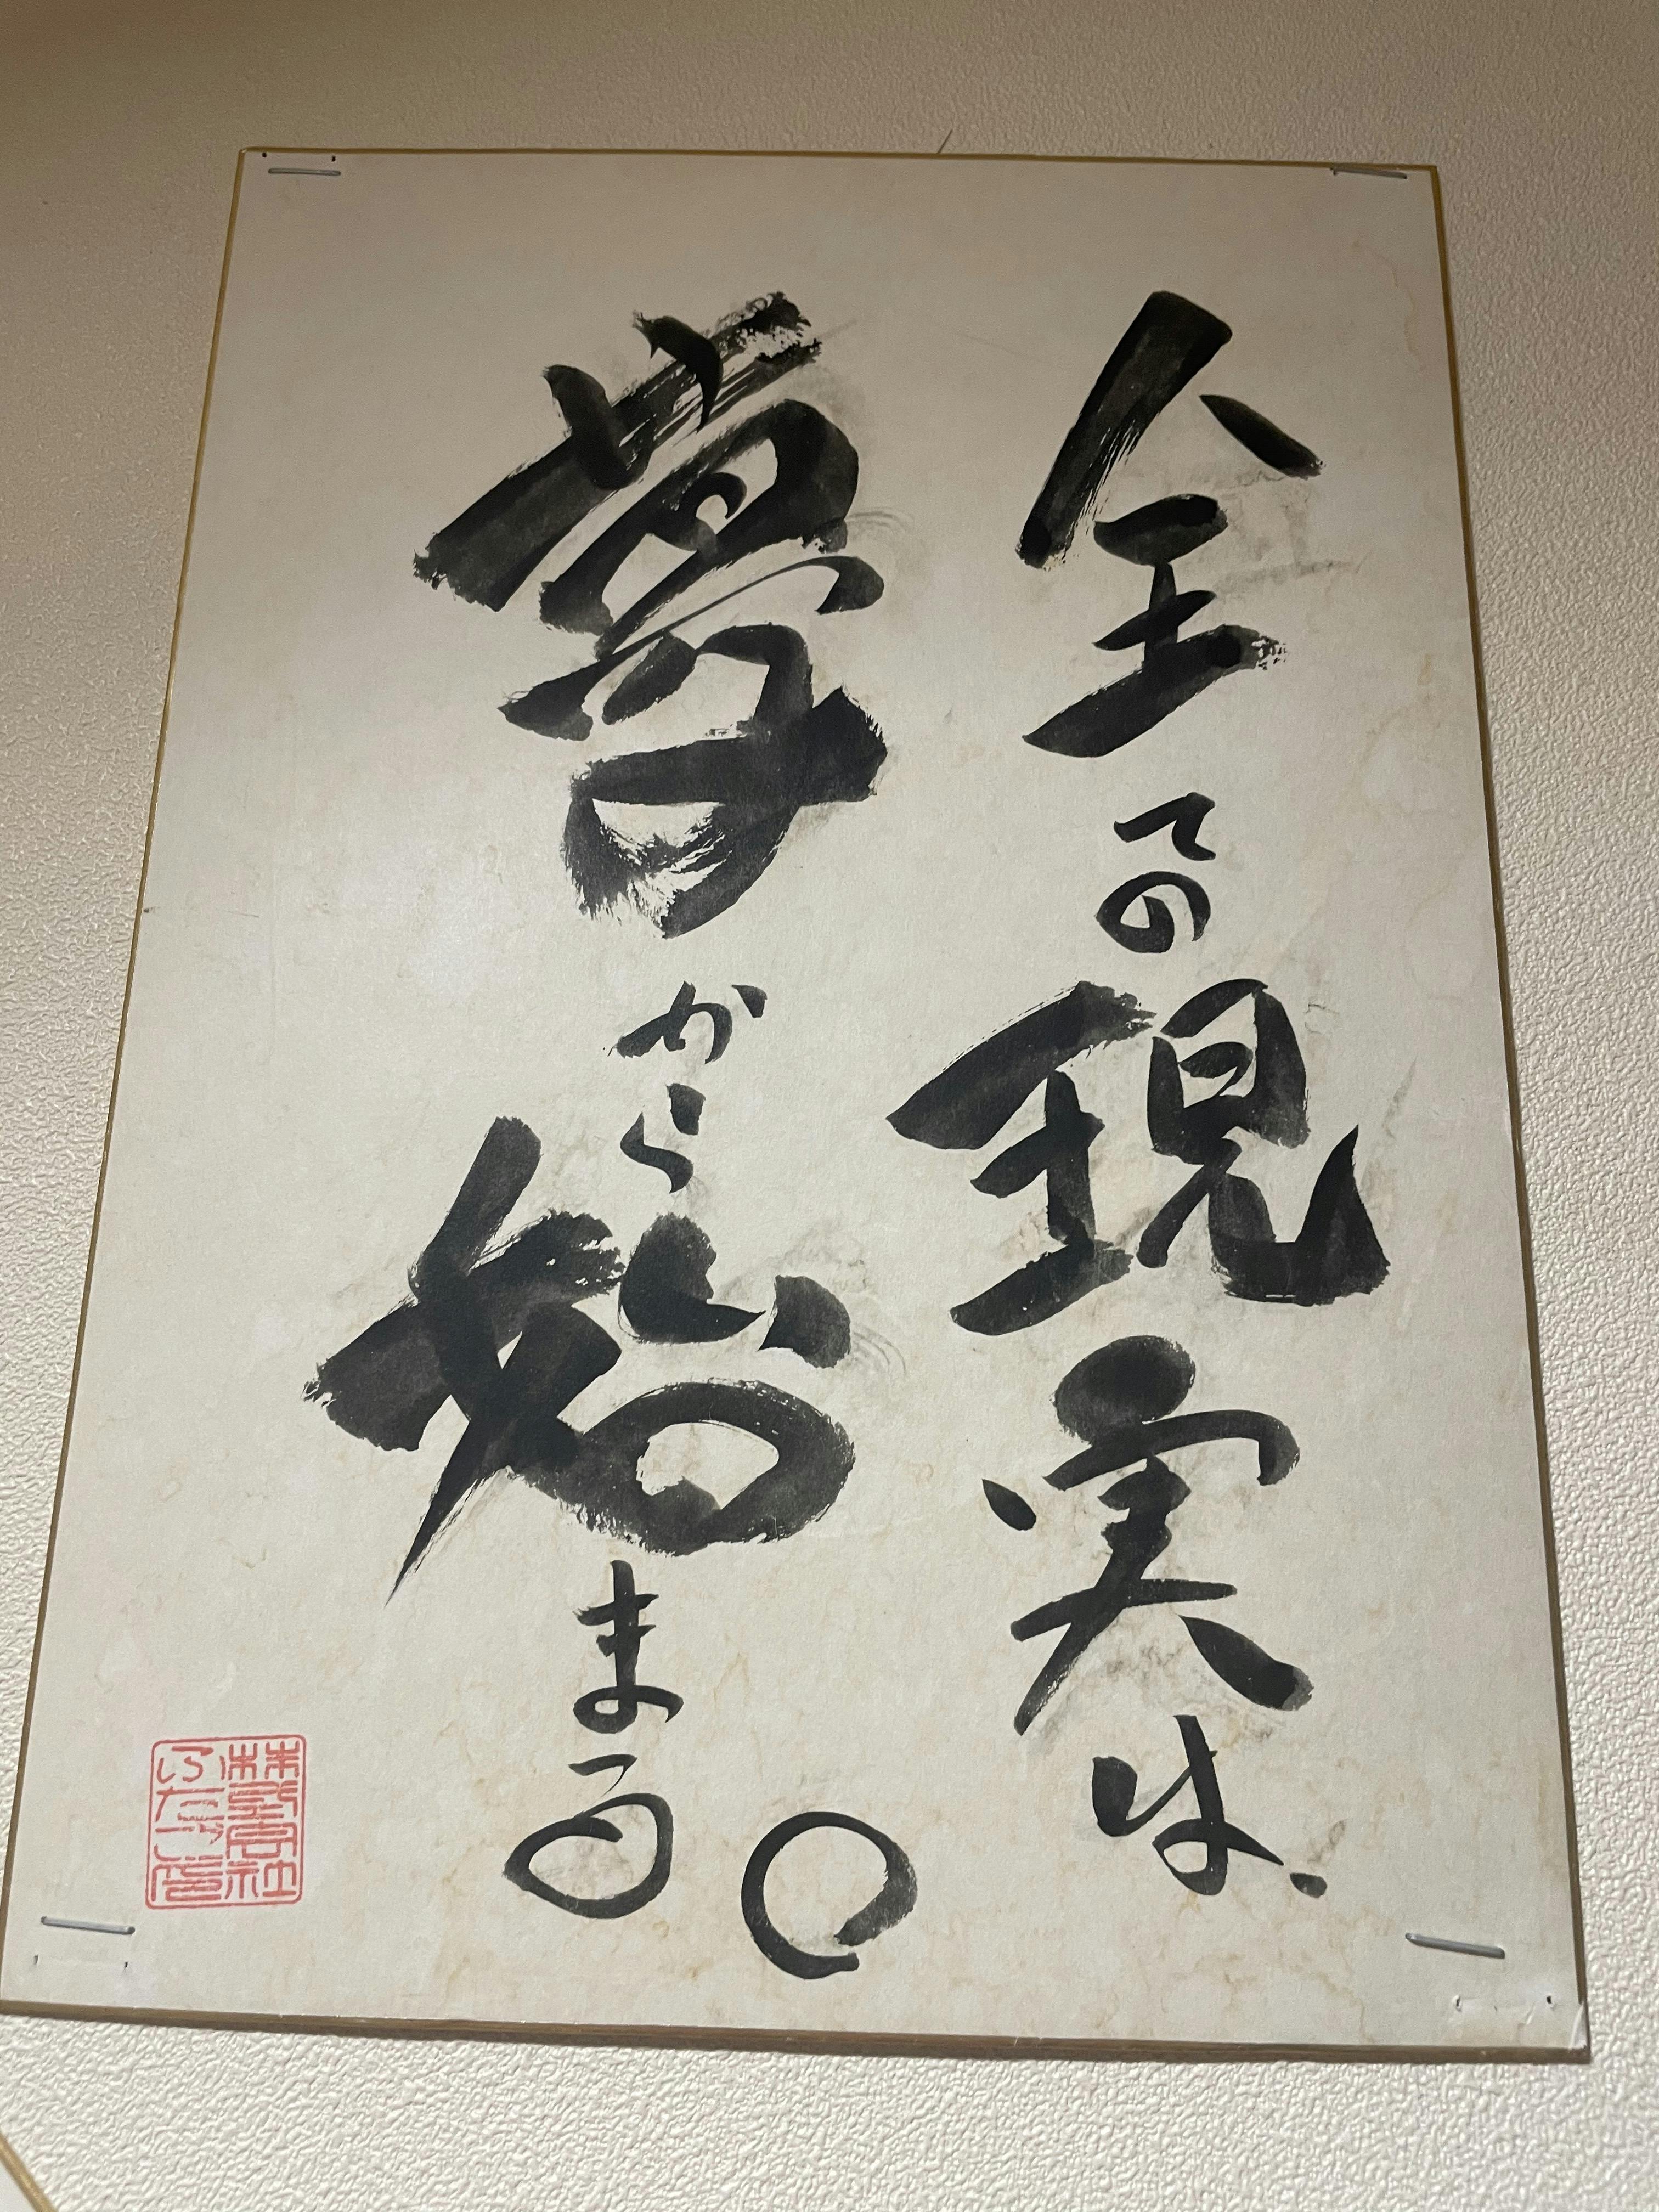 全ての現実は、
夢から始まる。